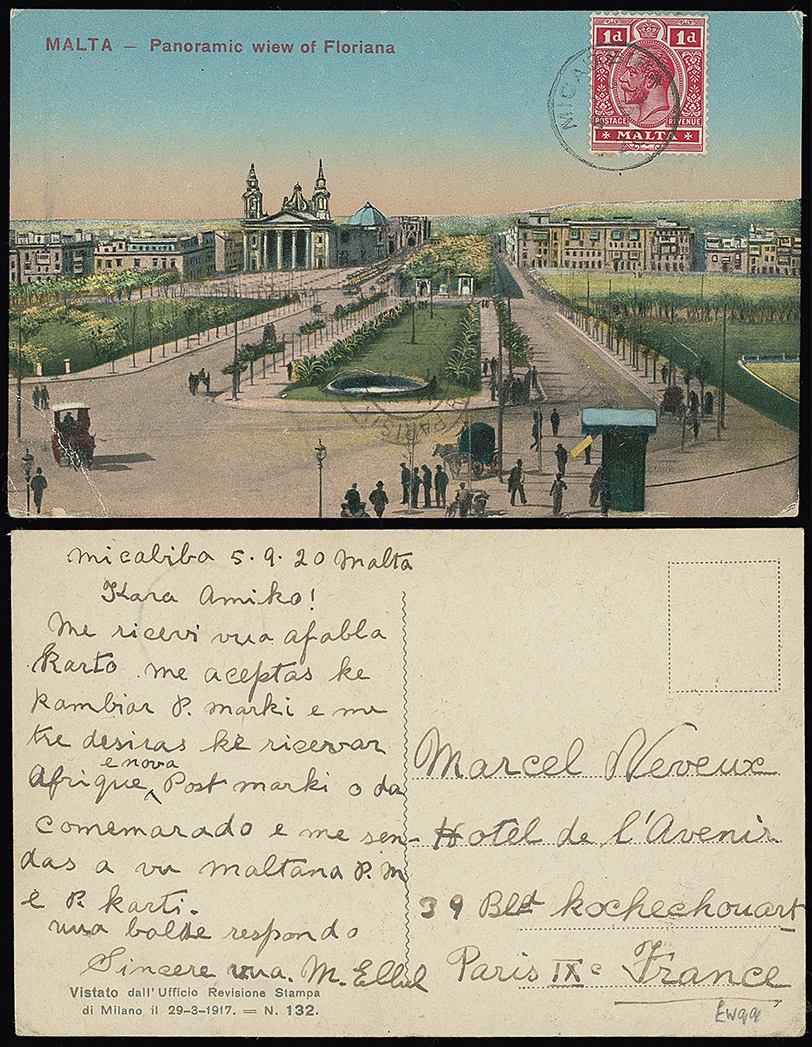 MALTA — Panoramic wiew of Floriana
1d 1d
POSTAGE REVENUE
MALTA
PARIS
Micabiba 5.9.20 Malta
Kara Amiko!
Me ricevi vua afabla
karto. me aceptas ke
kambiar P. marki e me
tre desiras ke ricevar
e nova
Afrique, Post marki o da
comemarado e me sen-
das a vu maltana P. M
e P. karti.
vua balde respondo
Sincere vua. M. Ellul
Vistato dall'Ufficio Revisione Stampa
di Milano il 29-3-1917. = N. 132.
Marcel Neveux
Hotel de l'Avenir
39 Bld kochechouart
Paris IXe France
Ewqq